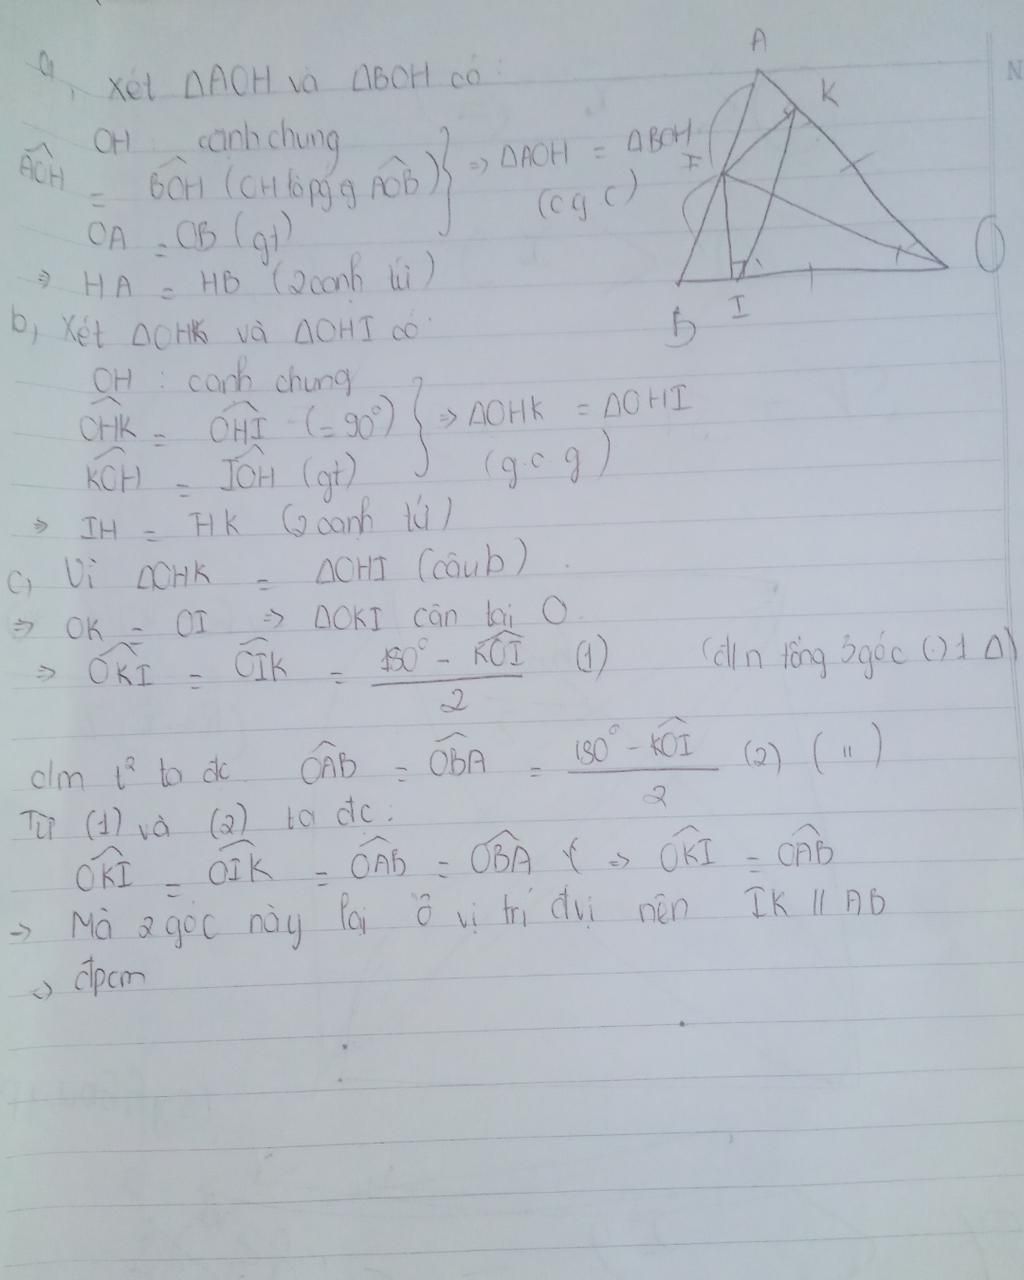 a, Xét ΔAOH và ΔBOH có :
OH cạnh chung
AOH = BOH (OH là pg g AOB) } => ΔAOH = ΔBOH
OA = OB (gt) (c g c)
=> HA = HB (2 cạnh tứ)
b, Xét ΔOHK và ΔOHI có :
OH : cạnh chung
OHK = OHI (= 90°) } => ΔOHK = ΔOHI
KOH = IOH (gt) (g.c.g)
=> IH = HK (2 cạnh tứ)
c, Vì ΔOHK = ΔOHI (câu b) .
=> OK = OI => ΔOKI cân tại O
=> OKI = OIK = (180° - KOI)/2 (1) (đ/n tổng 3 góc (.) 1 Δ)
clm t² ta đc OAB = OBA = (180° - KOI)/2 (2) ( " )
Từ (1) và (2) ta đc :
OKI = OIK = OAB = OBA => OKI = OAB
=> Mà 2 góc này lại ở vị trí đvị nên IK // AB
=> đpcm
A
K
H
B
I
O
N